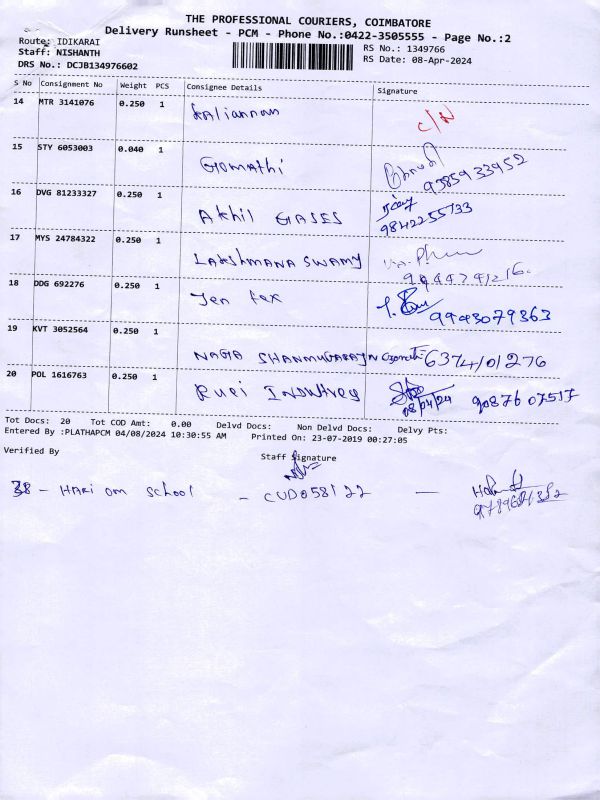 THE PROFESSIONAL COURIERS, COIMBATORE
Delivery Runsheet - PCM - Phone No.:0422-3505555 - Page No.:2
Route: IDIKARAI
RS No.: 1349766
Staff: NISHANTH
RS Date: 08-Apr-2024
DRS No.: DCJB134976602
S No Consignment No Weight PCS Consignee Details Signature
14 MTR 3141076 0.250 1 Kaliannan C/N
15 STY 6053003 0.040 1 Gomathi 9385933952
16 DVG 81233327 0.250 1 Akhil GASES 9842255733
17 MYS 24784322 0.250 1 LAKSHMANA SWAMY
18 DDG 692276 0.250 1 Jen fex 9943079363
19 KVT 3052564 0.250 1 NAGA SHANMUGARAJN Gomathi 6374101276
20 POL 1616763 0.250 1 08/04/24 9087607517
Tot Docs: 20 Tot COD Amt: 0.00 Delvd Docs: Non Delvd Docs: Delvy Pts:
Entered By :PLATHAPCM 04/08/2024 10:30:55 AM Printed On: 23-07-2019 00:27:05
Verified By
Staff Signature
38 - HARI OM School - CUD058122 -